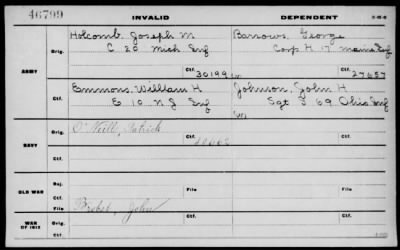 46799
INVALID
DEPENDENT
Holcomb, Joseph M
C 20 Mich Inf
Barrows, George
Corp H 17 Maine Inf
ARMY
Orig.
Ctf.
30199
Ctf.
27657
Emmons, William H
E 10 N J Inf
Johnson, John H
Sgt I 69 Ohio Inf
Ctf.
O'Neill, Patrick
NAVY
Orig.
Ctf.
Ctf.
OLD WAR
Rej.
Ctf.
File
File
Brobst, John
WAR OF 1812
Orig.
Ctf.
Ctf.